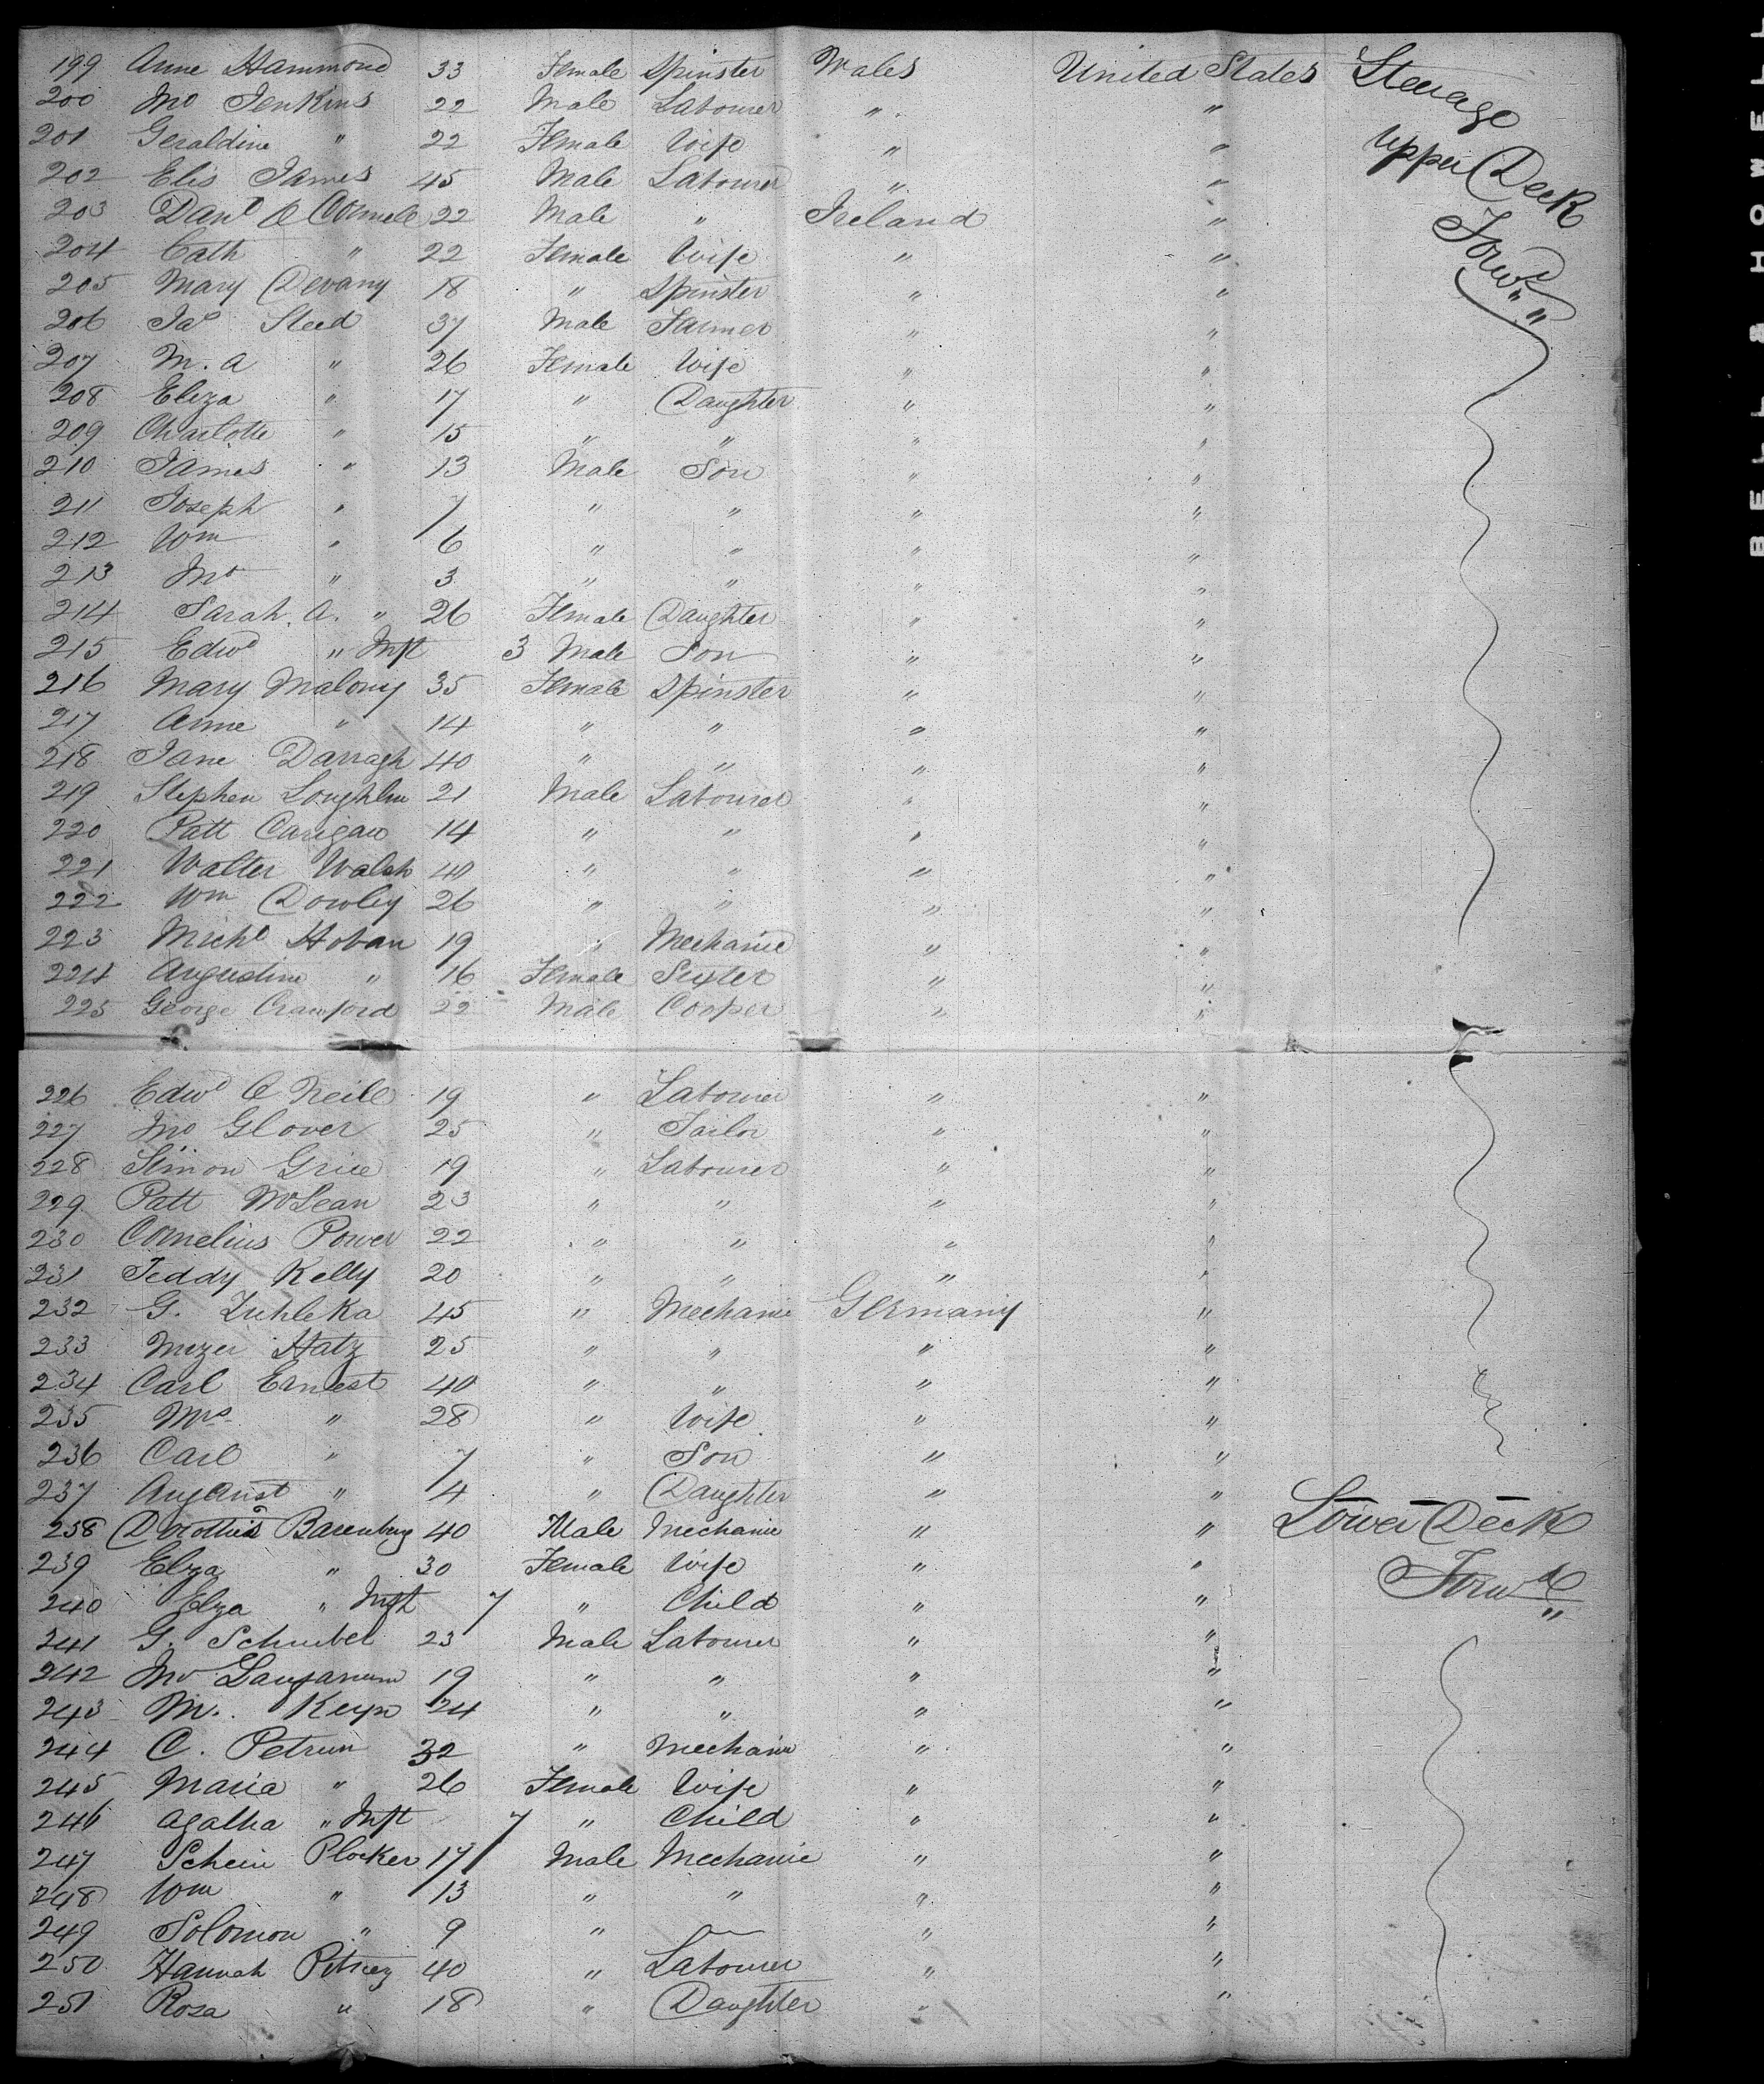 199 Anne Hammond 33 Female Spinster Wales United States Steerage
200 Jno Jenkins 22 Male Labourer " "
201 Geraldine " 22 Female Wife " " upper Deck
202 Elis James 45 Male Labourer " "
203 Danl O Connell 22 Male " Ireland " Forwd "
204 Cath " 22 Female Wife " "
205 Mary Devany 18 " Spinster " "
206 Jas Steed 37 Male Farmer " "
207 M. A " 26 Female Wife " "
208 Eliza " 17 " Daughter " "
209 Charlotte " 15 " " " "
210 James " 13 Male Son " "
211 Joseph " 7 " " " "
212 Wm " 6 " " " "
213 Jno " 3 " " " "
214 Sarah. A. " 26 Female Daughter " "
215 Edwd " Inft 3 Male Son " "
216 Mary Malony 35 Female Spinster " "
217 Anne " 14 " " " "
218 Jane Darragh 40 " " " "
219 Stephen Loughlin 21 Male Labourer " "
220 Patt Carigan 14 " " " "
221 Walter Walsh 40 " " " "
222 Wm Dowley 26 " " " "
223 Michl Hoban 19 " Mechanic " "
224 Augustine " 16 Female Sister " "
225 George Crawford 22 Male Cooper " "
226 Edwd O Neill 19 " Labourer " "
227 Jno Glover 25 " Tailor " "
228 Simon Grice 19 " Labourer " "
229 Patt McLean 23 " " " "
230 Cornelius Power 22 " " " "
231 Teddy Kelly 20 " " " "
232 G. Zuhleka 45 " Mechanic Germany "
233 Mezer Hatz 25 " " " "
234 Carl Ernest 40 " " " "
235 Mrs " 28 " Wife " "
236 Carl " 7 " Son " "
237 " 4 " Daughter " "
238 Barenberg 40 Male Mechanic " " Lower Deck
239 Elza " 30 Female Wife " " Forwd "
240 Elza " Inft 7 " Child " "
241 G. 23 Male Labourer " "
242 Jno 19 " " " "
243 M. 24 " " " "
244 C. Petrun 32 " Mechanic " "
245 Maria " 26 Female Wife " "
246 Agatha " Inft 7 " Child " "
247 Schein Plocker 17 Male Mechanic " "
248 Wm " 13 " " " "
249 Solomon " 9 " — " "
250 Hannah 40 " Labourer " "
251 Rosa " 18 " Daughter " "
BELL & HOWELL